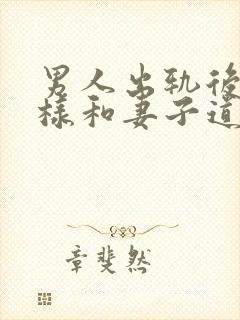 男人出轨後
樣和妻子道
章斐然